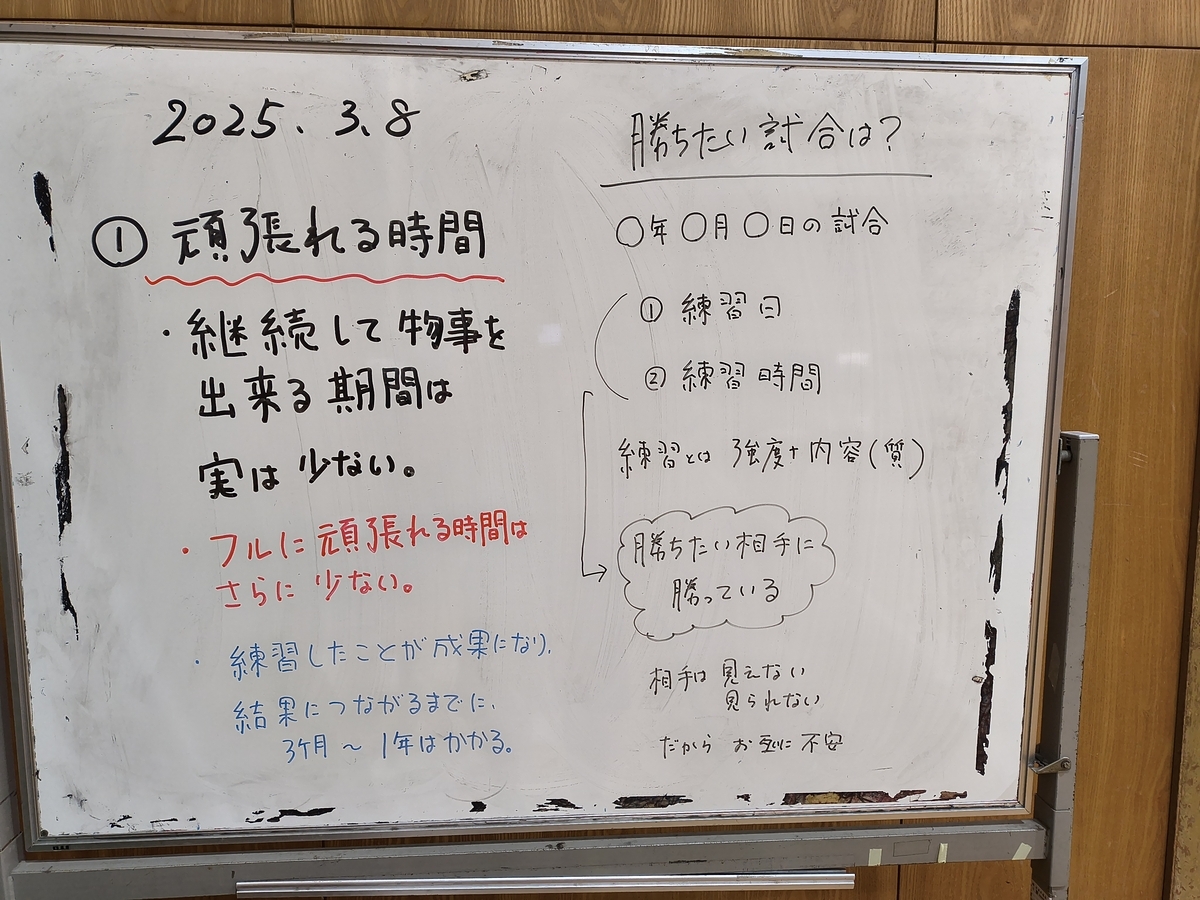 2025.3.8
① 頑張れる時間
・継続して物事を
出来る期間は
実は少ない。
・フルに頑張れる時間は
さらに少ない。
・練習したことが成果になり、
結果につながるまでに、
3ヶ月～1年はかかる。
勝ちたい試合は?
○年○月○日の試合
① 練習日
② 練習時間
練習とは 強度+内容(質)
勝ちたい相手に
勝っている
相手は 見えない
見られない
だから お互いに 不安